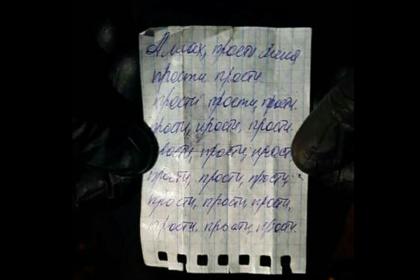 Аллах, прости меня
прости прости
прости прости, прости.
прости, прости, прости.
прости, прости, прости
прости, прости, прости,
прости, прости, прости,
прости, прости, прости.